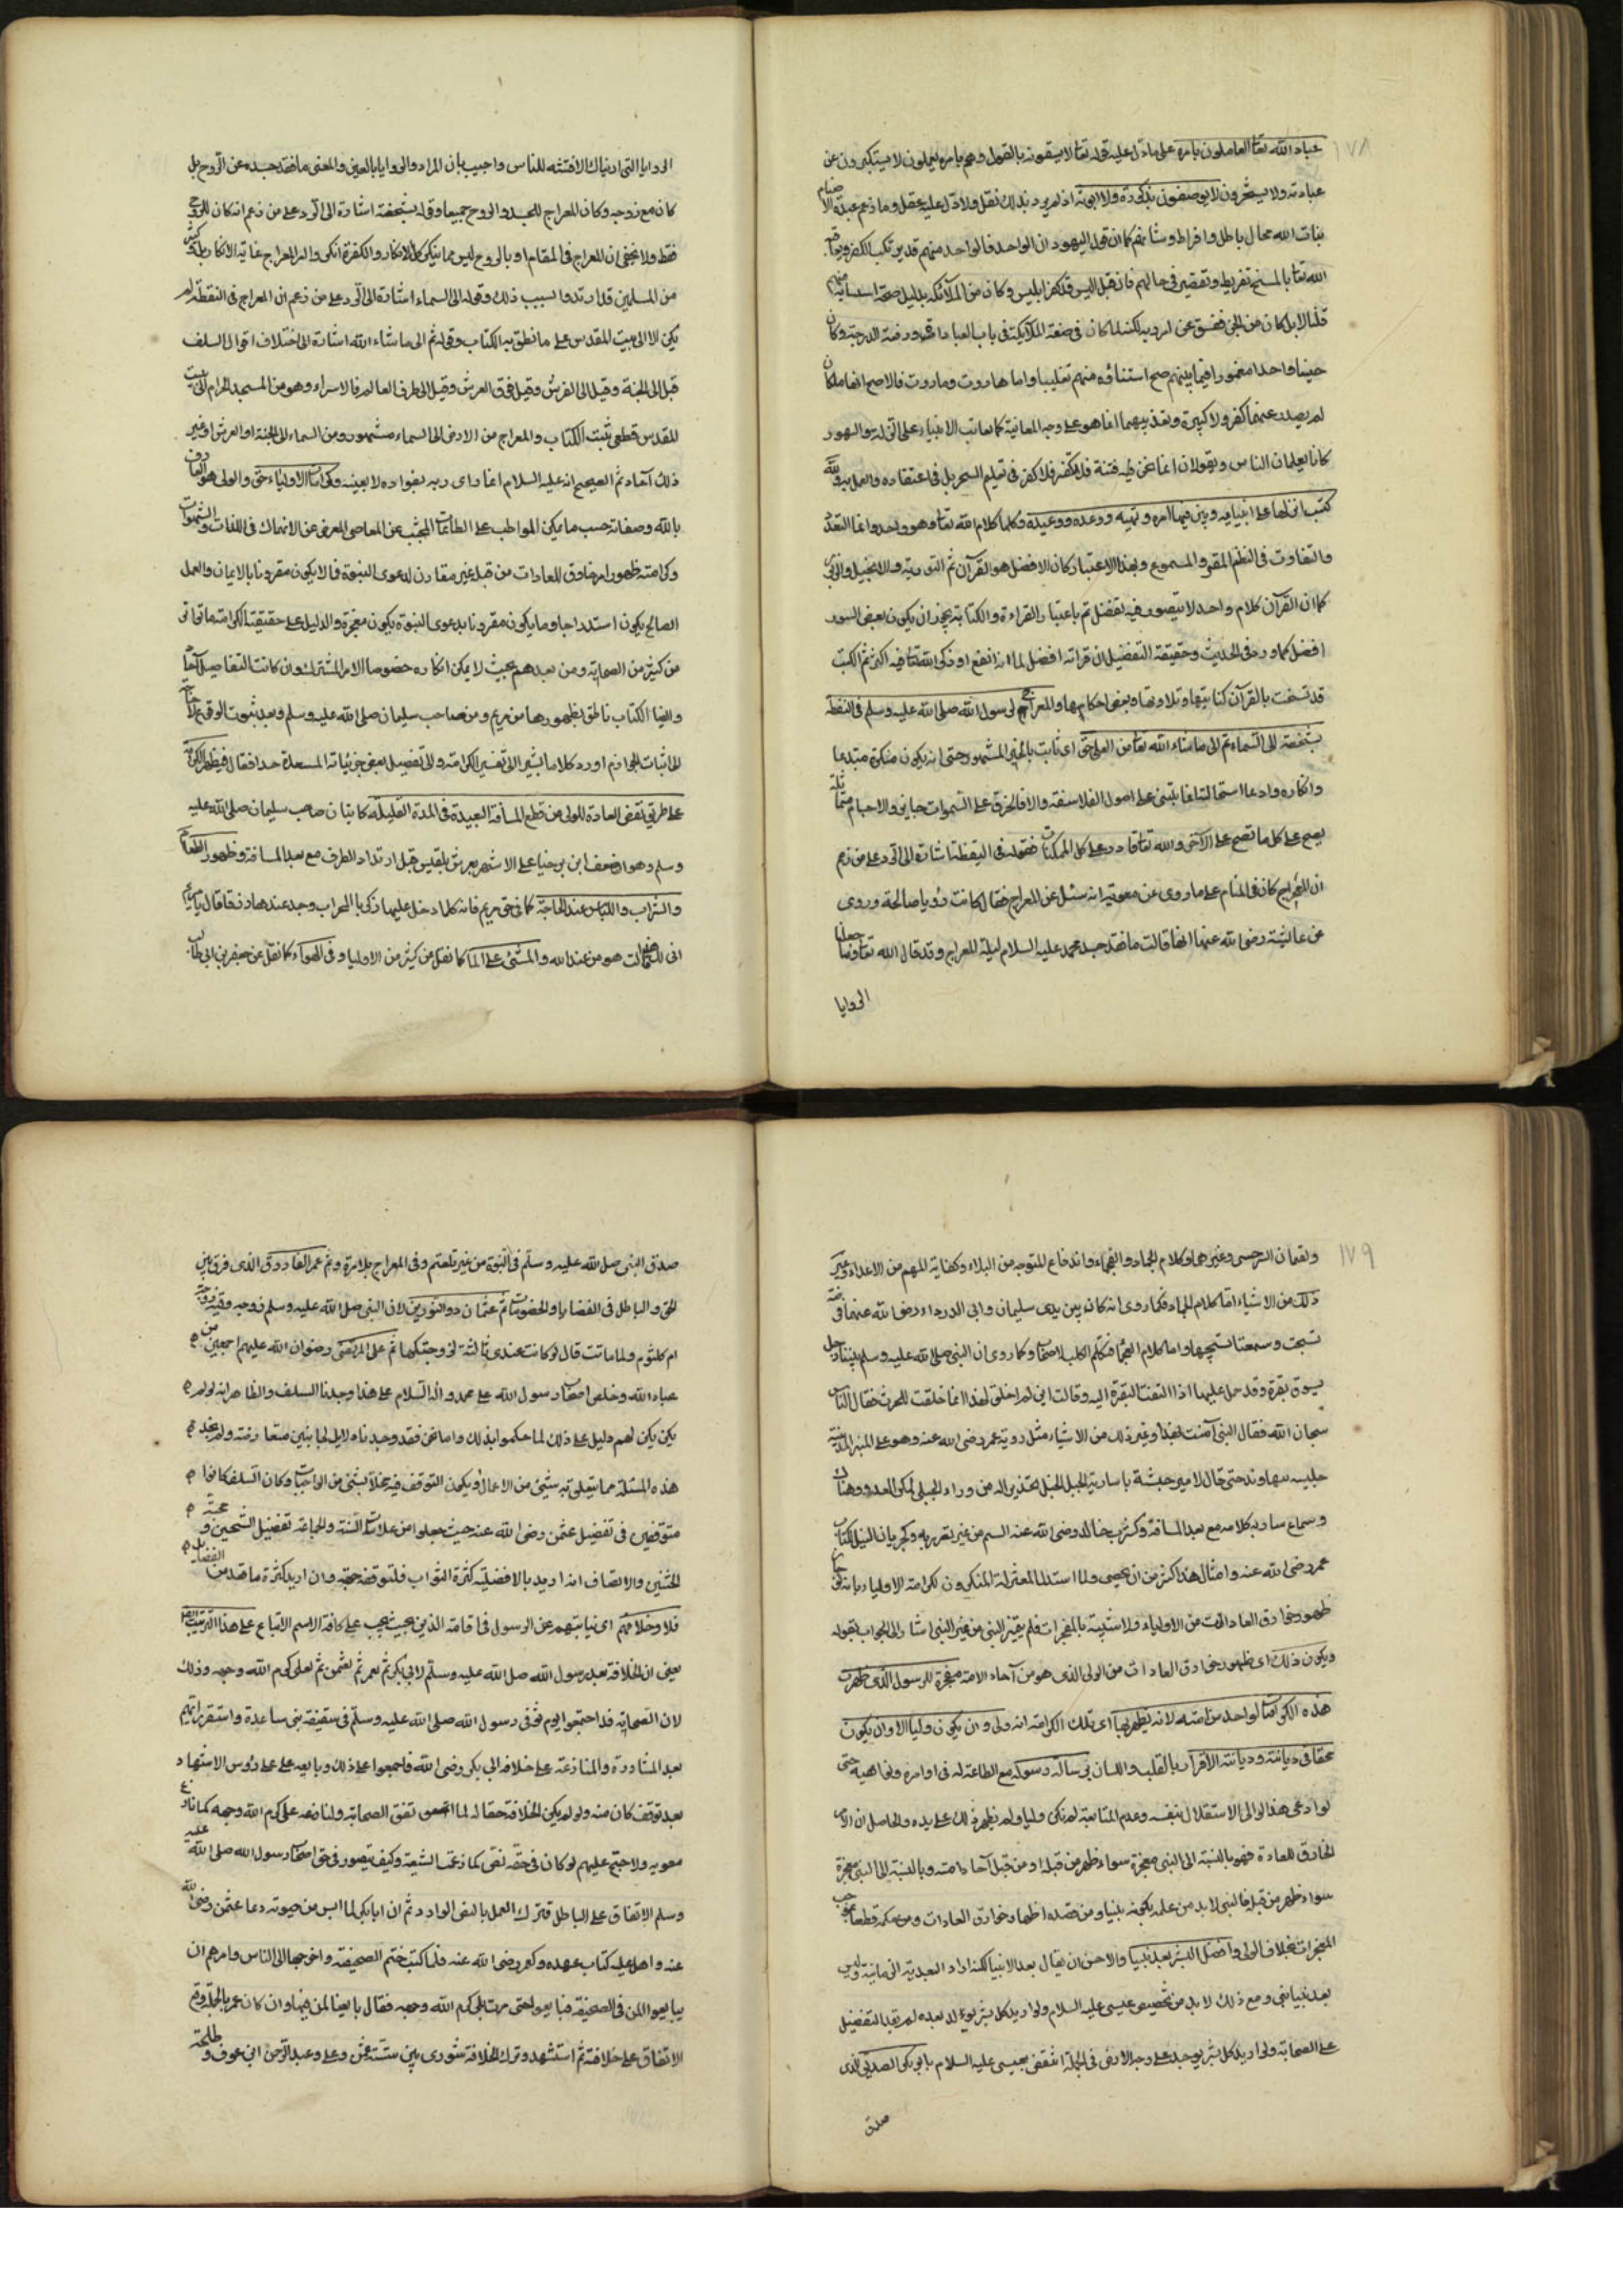 ١٧٨
عباد الله تعا العاملون بامره على ما دل عليه قوله تعا لا يسبقونه بالقول وهم بامره يعملون لا يستكبرون عن
عبادته ولا يستحسرون لا يوصفون بذكورة ولا انوثة اذ لم يرد بذلك نقل ولا دل عليه عقل وما زعم عبدة الاصنام
بنات الله محال باطل وافراط وشانهم كما ان قول اليهود ان الواحد فالواحد منهم قد يرتكب الكفر ويعاقبه
الله تعا بالمسخ تفريط وتقصير في حالهم فان قيل اليس قد كفر ابليس وكان من الملائكة بدليل صحة استثنائه منهم
قلنا لا بل كان من الجن ففسق عن امر ربه لكنه لما كان في صفة الملائكة في باب العبادة ورفعة الدرجة وكان
جنيا واحدا مغمورا فيما بينهم صح استثناؤه منهم تغليبا واما هاروت وماروت فالاصح انهما ملكان
لم يصدر عنهما كفر ولا كبيرة وتعذيبهما انما هو على وجه المعاتبة كما يعاتب الانبياء على الزلة والسهو و
كانا يعلمان الناس ويقولان انما نحن فتنة فلا تكفر فلا كفر في تعليم السحر بل في اعتقاده والعمل به ولله
كتب انزلها على انبيائه وبين فيها امره ونهيه ووعده ووعيده وكلها كلام الله تعا وهو واحد وانما التعدد
والتفاوت في النظم المقرو المسموع وبهذا الاعتبار كان الافضل هو القرآن ثم التورية والانجيل والزبور
كما ان القرآن كلام واحد لا يتصور فيه تفضل ثم باعتبار القراءة والكتابة يجوز ان يكون بعض السور
افضل كما ورد في الحديث وحقيقة التفضيل ان قراته افضل لما انه انفع او ذكر الله تعا فيه اكثر ثم الكتب
قد نسخت بالقرآن كتابتها وتلاوتها وبعض احكامها والمعراج لرسول الله صلى الله عليه وسلم في اليقظة
بشخصه الى السماء ثم الى ما شاء الله تعا من العلى حق اى ثابت بالخبر المشهور حتى انه يكون منكره مبتدعا
وانكاره وادعا استحالته انما يبتنى على اصول الفلاسفة والا فالخرق على السموات جايز والاجسام متماثلة
يصح على كل ما تصح على الآخر والله تعا قادر على كل الممكنات فقوله في اليقظة اشارة الى الرد على من زعم
ان المعراج كان في المنام على ما روى عن معوية انه سئل عن المعراج فقال كانت رؤيا صالحة وروى
عن عائشة رضى الله عنها انها قالت ما فقد جسد محمد عليه السلام ليلة المعراج وقد قال الله تعا وما جعلنا
الرويا
الرويا التي اريناك الا فتنه للناس واجيب بان المراد والرويا بالعين والمعنى ما فقد جسده عن الروح بل
كان مع روحه وكان المعراج للجسد والروح جميعا وقوله بشخصه اشارة الى الرد على من زعم انه كان للروح
فقط ولا يخفى ان المعراج في المقام او بالروح ليس مما ينكر كل الانكار والكفرة انكروا امر المعراج غاية الانكار بل كثير
من المسلمين قد ارتدوا بسبب ذلك وقوله الى السماء اشارة الى الرد على من زعم ان المعراج في اليقظة لم
يكن الا الى بيت المقدس على ما نطق به الكتاب وقوله ثم الى ما شاء الله اشارة الى اختلاف اقوال السلف
قيل الى الجنة وقيل الى العرش وقيل فوق العرش وقيل الى طرف العالم فالاسراء وهو من المسجد الحرام الى بيت
المقدس قطعي ثبت بالكتاب والمعراج من الارض الى السماء مشهور ومن السماء الى الجنة او العرش او غير
ذلك آحاد ثم الصحيح انه عليه السلام انما راى ربه بفواده لا بعينه وكرامات الاولياء حق والولى هو العارف
بالله وصفاته حسب ما يمكن المواظب على الطاعات المجتنب عن المعاصى المعرض عن الانهماك في اللذات والشهوات
وكرامته ظهور امر خارق للعادات من قبله غير مقارن لدعوى النبوة فما لا يكون مقرونا بالايمان والعمل
الصالح يكون استدراجا وما يكون مقرونا بدعوى النبوة يكون معجزة والدليل على حقيقة الكرامة ما تواتر
من كثير من الصحابة ومن بعدهم بحيث لا يمكن انكاره خصوصا الامر المشترك وان كانت التفاصيل آحادا
وايضا الكتاب ناطق بظهورها من مريم ومن صاحب سليمان صلى الله عليه وسلم وبعد ثبوت الوقوع لا حاجة
الى اثبات الجواز ثم اورد كلاما يشير الى تفسير الكرامة والى تفصيل بعض جزئياته المستبعدة جدا فقال فيظهر الكرامة
على طريق نقض العادة للولى من قطع المسافة البعيدة في المدة القليلة كاتيان صاحب سليمان صلى الله عليه
وسلم وهو اصف ابن برخيا على الاشهر بعرش بلقيس قبل ارتداد الطرف مع بعد المسافة وظهور الطعام
والشراب واللباس عند الحاجة كما في حق مريم فانه كلما دخل عليها زكريا المحراب وجد عندها رزقا قال يا مريم
انى لك هذا قالت هو من عند الله والمشى على الما كما نقل من كثير من الاولياء وفي الهواء كما نقل عن جعفر بن ابى طالب
١٧٩
ولقمان السرخسى وغيرهما وكلام الجماد والعجماء واندفاع المتوجه من البلاء وكفاية المهم من الاعداء وغير
ذلك من الاشياء اما كلام الجماد فكما روى انه كان بين يدى سليمان وابى الدرداء رضى الله عنهما قصعة
تسبحت وسمعتا تسبيحها واما كلام العجماء فتكلم الكلب لاصحاب وكما روى ان النبى صلى الله عليه وسلم بينا رجل
يسوق بقرة وقد حمل عليها اذا التفتت البقرة اليه وقالت انى لم اخلق لهذا انما خلقت للحرث فقال الناس
سبحان الله فقال النبى آمنت بهذا وغير ذلك من الاشياء مثل روية عمر رضى الله عنه وهو على المنبر بالمدينة
جليسه بنهاوند حتى قال لامير جيشه يا سارية الجبل الجبل تحذيرا له من وراء الجبل لمكر العدو وهناك
وسماع سارية كلامه مع بعد المسافة وكشرب خالد رضى الله عنه السم من غير تضرر به وكجريان النيل بكتاب
عمر رضى الله عنه وامثال هذا اكثر من ان يحصى ولما استدل المعتزلة المنكرون لكرامة الاولياء بانه لو جاز
ظهور خوارق العادات من الاولياء ولاشتبه بالمعجزات فلم يتميز النبى من غير النبى اشار الى الجواب بقوله
ويكون ذلك اى ظهور خوارق العادات من الولى الذى هو من آحاد الامة معجزة للرسول الذى ظهرت
هذه الكرامة لواحد من امته لانه يظهر بها اى بتلك الكرامة انه ولى ولن يكون وليا الا وان يكون
محقا في ديانته وديانته الاقرار بالقلب واللسان برسالة رسوله مع الطاعة له في اوامره ونواهيه حتى
لو ادعى هذا الولى الاستقلال بنفسه وعدم المتابعة لم يكن وليا ولم يظهر ذلك على يده والحاصل ان الامر
الخارق للعادة فهو بالنسبة الى النبى معجزة سواء ظهر من قبله او من قبل آحاد امته وبالنسبة الى النبى معجزة
سواء ظهر من قبله فالنبى لا بد من علمه بكونه نبيا ومن قصده اظهار خوارق العادات ومن حكمه قطعا بموجب
المعجزات بخلاف الولى وافضل البشر بعد نبينا والاحسن ان يقال بعد الانبيا لكنه اراد البعدية الزمانية وليس
بعد نبينا نبى ومع ذلك لا بد من تخصيص عيسى عليه السلام ولو اريد كل بشر يولد بعده لم يفد التفضيل
على الصحابة ولو اريد كل بشر يوجد على وجه الارض في الجملة انتقض بعيسى عليه السلام بابو بكر الصديق الذى
صدق
صدق النبى صلى الله عليه وسلم في النبوة من غير تلعثم وفي المعراج بلا تردد ثم عمر الفاروق الذى فرق بين
الحق والباطل في القضايا والخصومات ثم عثمان ذو النورين لان النبى صلى الله عليه وسلم زوجه رقية وزوجه
ام كلثوم ولما ماتت قال لو كانت عندى ثالثة لزوجتكها ثم على المرتضى رضوان الله عليهم اجمعين من
عباد الله وخلص اصحاب رسول الله على محمد واله السلام على هذا وجدنا السلف والظاهر انه لو لم
يكن يكن لهم دليل على ذلك لما حكموا بذلك واما نحن فقد وجدنا دلايل الجانبين متعارضة ولم نجد
هذه المسئلة مما يتعلق به شيئ من الاعمال ويكون التوقف فيه مخلا بشئ من الواجبات وكان السلف كانوا
متوقفين في تفضيل عثمن رضى الله عنه حيث جعلوا من علامات السنة والجماعة تفضيل الشيخين ومحبة
الختنين والانصاف انه اريد بالافضلية كثرة الثواب فللتوقف جهة وان اريد كثرة ما يعد من الفضائل
فلا وخلافتهم اى نيابتهم عن الرسول في اقامة الدين بحيث يجب على كافة الامم الاتباع على هذا الترتيب ايضا
يعنى ان الخلافة بعد رسول الله صلى الله عليه وسلم لابى بكر ثم لعمر ثم لعثمن ثم لعلى كرم الله وجهه وذلك
لان الصحابة قد اجتمعوا يوم توفى رسول الله صلى الله عليه وسلم في سقيفة بنى ساعدة واستقر رايهم
بعد المشاورة والمنازعة على خلافه ابى بكر رضى الله فاجمعوا على ذلك وبايعه على على رؤس الاشهاد
بعد توقف كان منه ولو لم يكن الخلافة حقا له لما اتفق الصحابة ولنازعه على كرم الله وجهه كما نازع
معويه ولاحتج عليهم لو كان في حقه نص كما زعمت الشيعة وكيف يتصور في حق اصحاب رسول الله صلى الله عليه
وسلم الاتفاق على الباطل وترك العمل بالنص الوارد ثم ان ابا بكر لما ايس من حيوته دعا عثمن رضى الله
عنه واملى عليه كتاب عهده لعمر رضى الله عنه فلما كتب ختم الصحيفة واخرجها الى الناس وامرهم ان
يبايعوا لمن في الصحيفة فبايعوا حتى مرت بعلى كرم الله وجهه فقال بايعنا لمن فيها وان كان عمر بالجملة وقع
الاتفاق على خلافته ثم استشهد وترك الخلافة شورى بين ستة عثمن وعلى وعبد الرحمن ابن عوف وطلحة